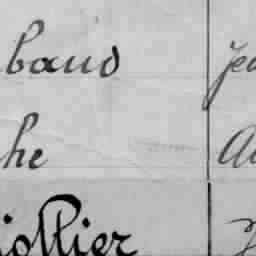 baud je
he A
jollier J